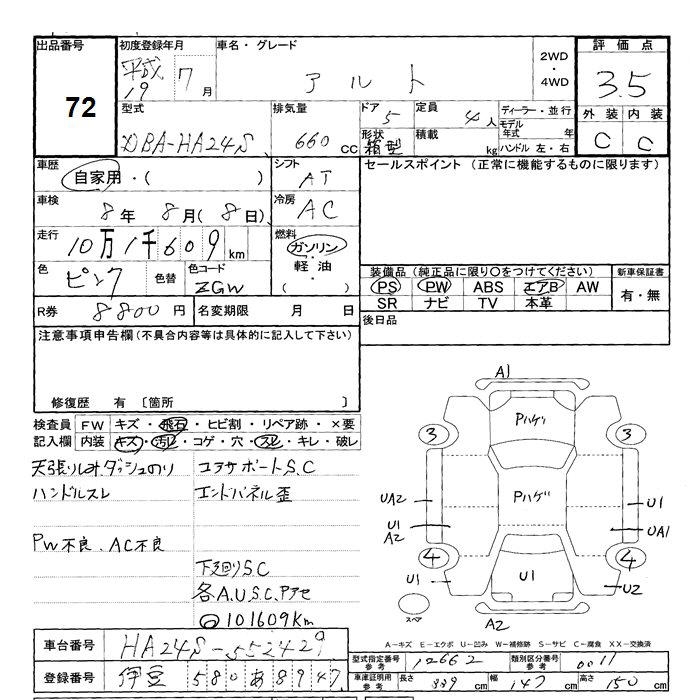 出品番号 72
初度登録年月 平成 19 7月
車名・グレード アルト
2WD・4WD
評価点 3.5
外装 C 内装 C
型式 DBA-HA24S
排気量 660 cc
ドア 5 形状 箱型
定員 4人 積載 kg
ディーラー・並行
モデル年式 年
ハンドル 左・右
車歴 自家用・( )
シフト AT
セールスポイント (正常に機能するものに限ります)
車検 8年 8月(8日)
冷房 AC
走行 10万1千609km
燃料 ガソリン・軽油・( )
色 ピンク 色替 色コード ZGW
装備品 (純正品に限り○をつけてください)
PS PW ABS エアB AW
SR ナビ TV 本革
新車保証書 有・無
R券 8800円 名変期限 月 日
後日品
注意事項申告欄 (不具合内容等は具体的に記入して下さい)
修復歴 有 〔箇所 〕
検査員記入欄 FW キズ・飛石・ヒビ割・リペア跡・×要
内装 キズ・汚レ・コゲ・穴・スレ・キレ・破レ
天張りシミ ダッシュのり
ハンドルスレ
PW不良、AC不良
コアサポートS.C
エンドパネル歪
下廻りS.C
各A.U.S.C.Pアセ
101609Km
A1
Pハゲ
3 3
Pハゲ
UA2 U1
U1 A2 UA1
4 4
U1 U1 U2
スペア A2
A－キズ E－エクボ U－凹み W－補修跡 S－サビ C－腐食 XX－交換済
車台番号 HA24S-552429
登録番号 伊豆 580 あ 8947
型式指定番号 参考 12662 類別区分番号 参考 0011
車庫証明用 参考 長さ 339 cm 幅 147 cm 高さ 150 cm